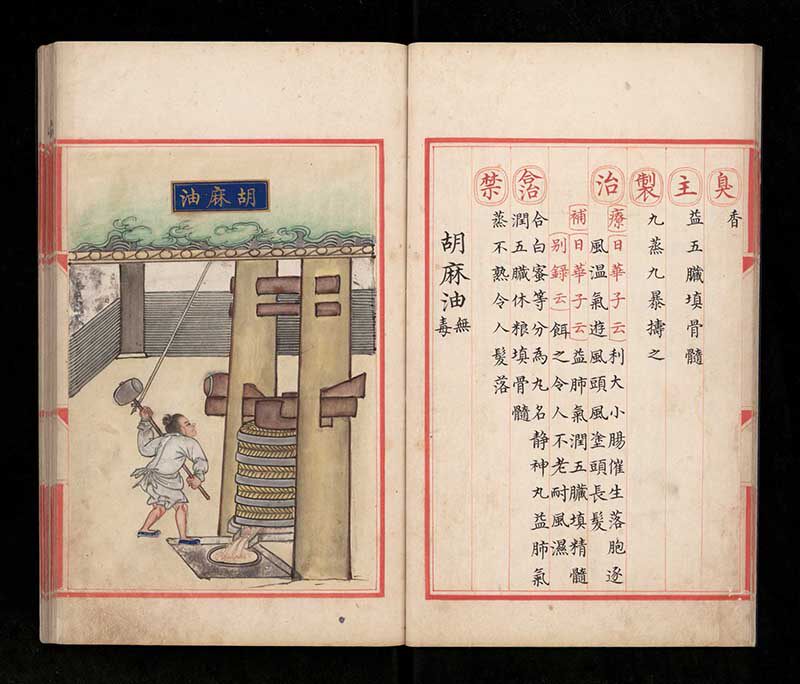 臭
香
主
益五臟填骨髓
製
九蒸九暴擣之
治
療日華子云利大小腸催生落胞逐
風溫氣遊風頭風塗頭長髮
補日華子云益肺氣潤五臟填精髓
別錄云餌之令人不老耐風濕
合治
合白蜜等分為丸名静神丸益肺氣
潤五臟休粮填骨髓
禁
蒸不熟令人髮落
胡麻油無毒
胡麻油